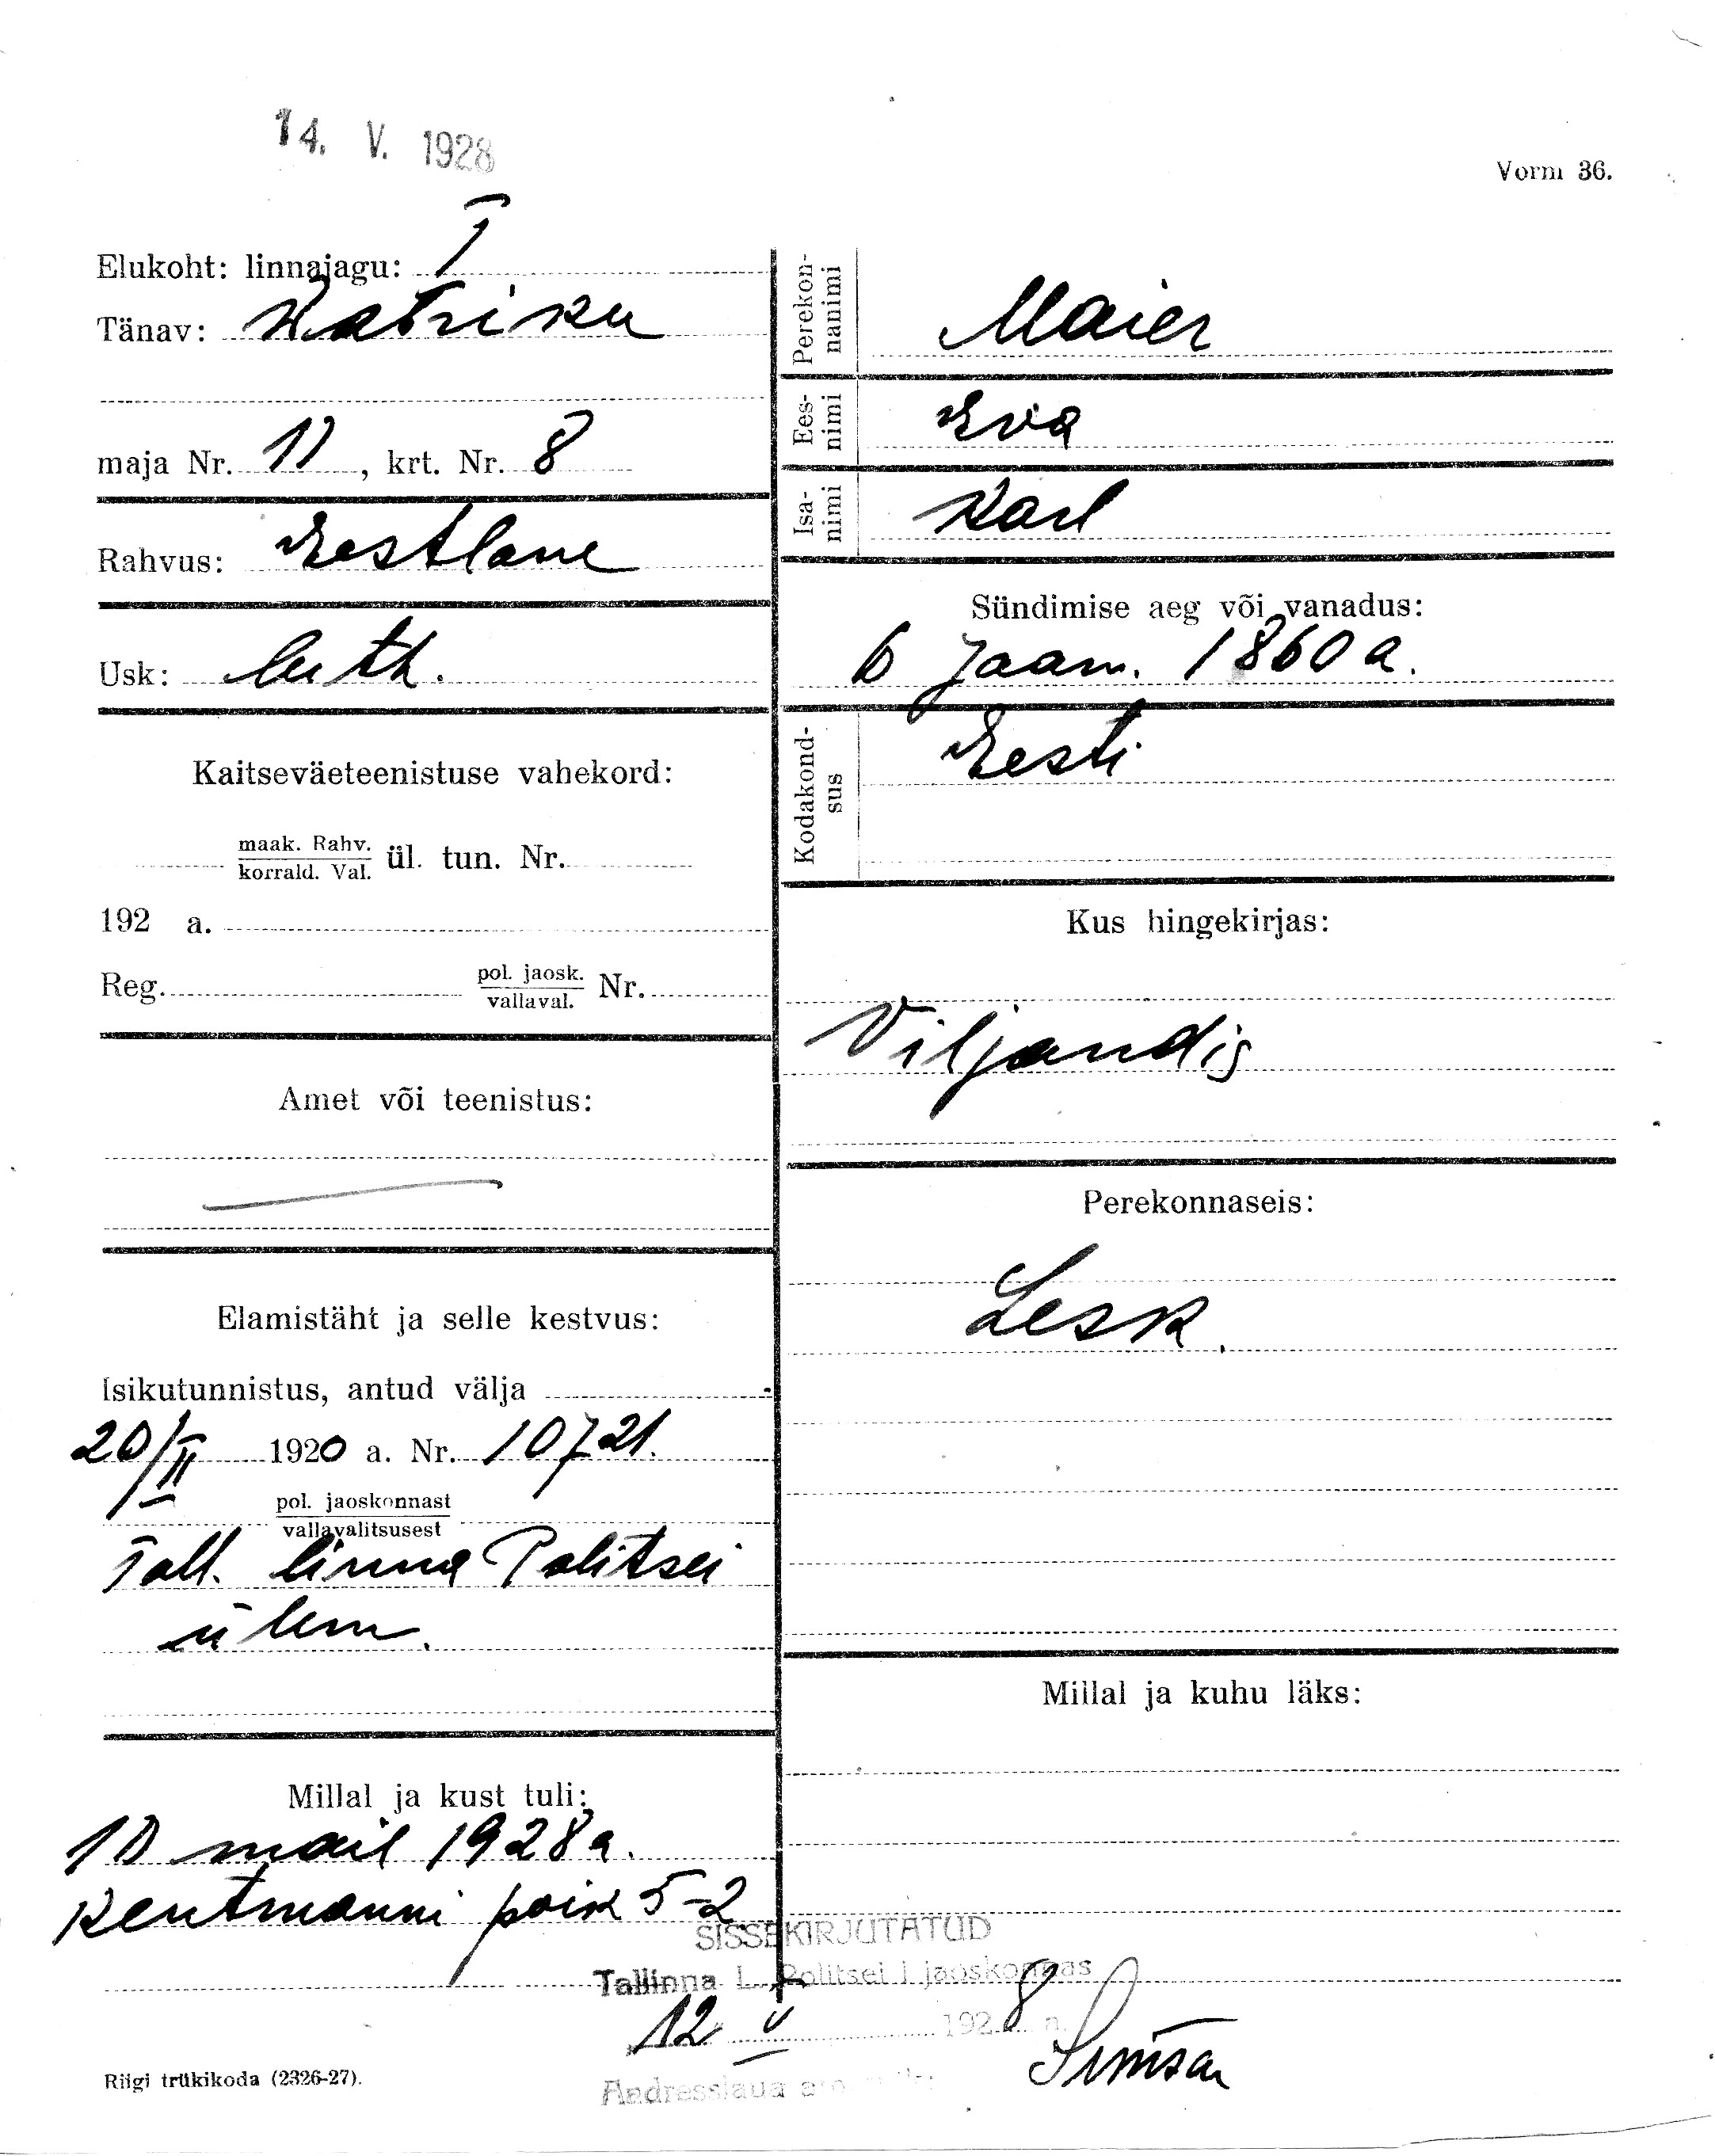 14. V. 1928
Vorm 36.
Elukoht: linnajagu: I
Tänav: Katriku
maja Nr. 11, krt. Nr. 8
Rahvus: Eestlane
Usk: luth.
Kaitseväeteenistuse vahekord:
maak. Rahv.
korrald. Val. ül. tun. Nr.
192 a.
Reg. pol. jaosk.
vallaval. Nr.
Amet või teenistus:
Elamistäht ja selle kestvus:
Isikutunnistus, antud välja
20/II 1920 a. Nr. 10721.
pol. jaoskonnast
vallavalitsusest
Tall. linna Politsei
ülem.
Millal ja kust tuli:
10 mail 1928 a.
Kentmanni poik 5-2
Perekon-
nanimi
Maier
Ees-
nimi
Eva
Isa-
nimi
Karl
Sündimise aeg või vanadus:
6 Jaan. 1860 a.
Kodakond-
sus
Eesti
Kus hingekirjas:
Viljandis
Perekonnaseis:
Lesk.
Millal ja kuhu läks:
SISSEKIRJUTATUD
Tallinna L. Politsei I jaoskonnas
12 V 1928 a.
Andresslaua
Riigi trükikoda (2326-27).